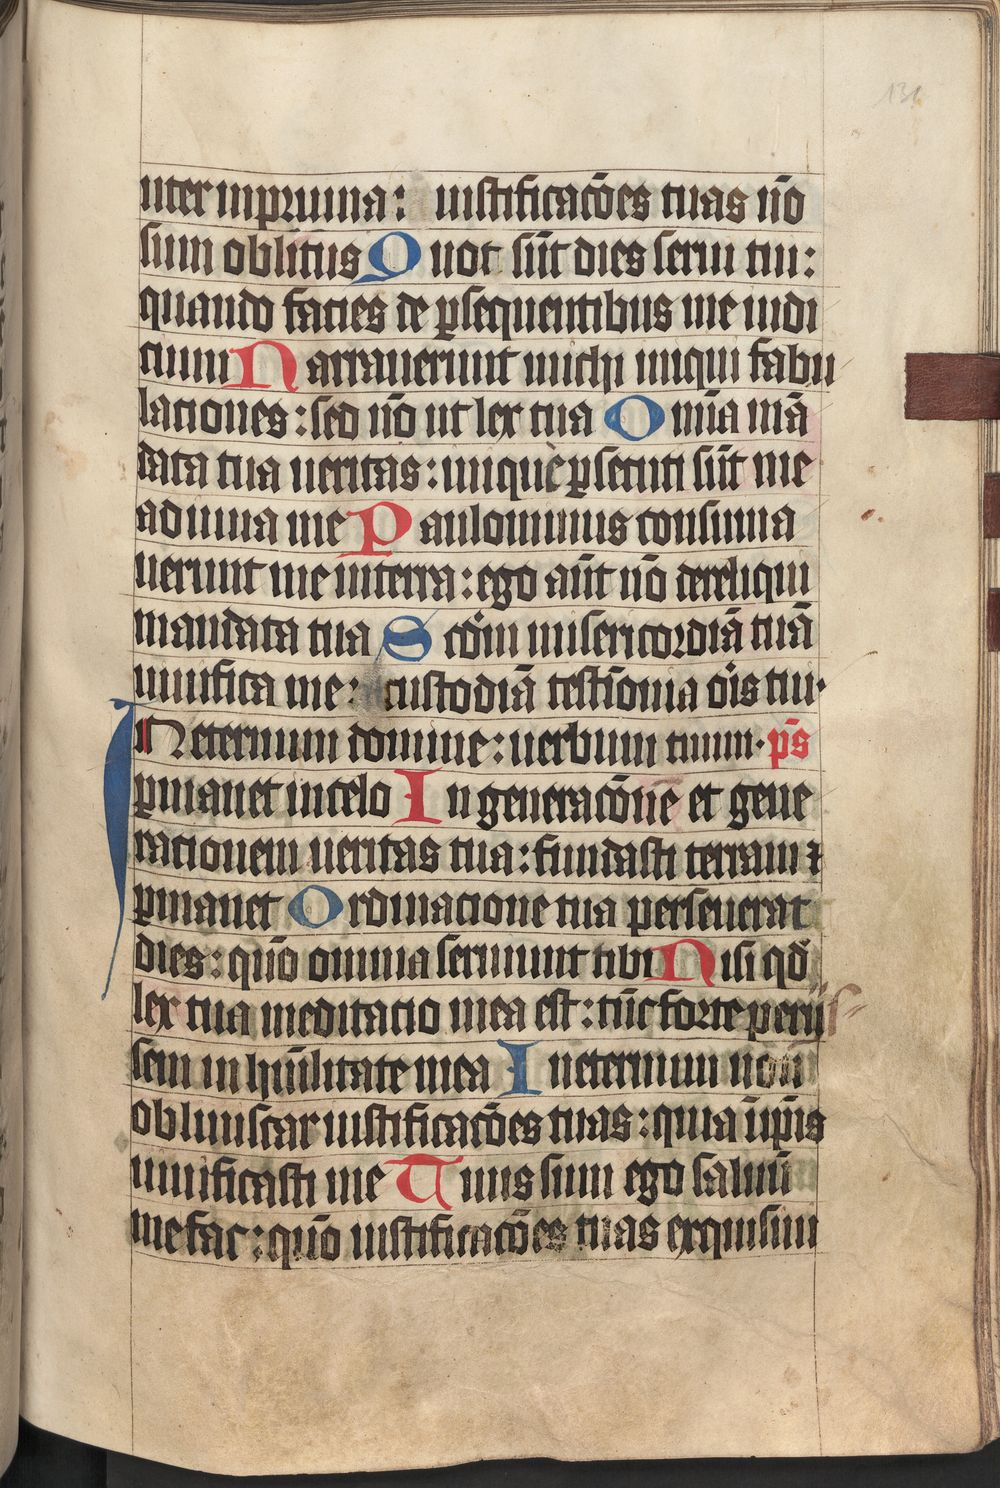 131
uter in pruina: iustificac̄oes tuas nō
sum oblitus Quot sūt dies serui tui:
quando facies de p̱sequentibus me iudi
cium Narrauerunt michi iniqui fabu
laciones: sed nō ut lex tua Om̄ia mā
data tua ueritas: inique p̱secuti sūt me
adiuua me Paulominus consuma
uerunt me interra: ego aūt nō dereliqui
mandata tua Scd̄m misericordiā tuā
uiuifica me: custodiā testīonia oīs tui·
In eternum domine: uerbum tuum· p̄s
p̱manet in celo In generac̄one et gene
racionem ueritas tua: fundasti terram ⁊
p̱manet Ordinacione tua perseuerat
dies: qm̄o omnia seruiunt tibi Nisi qd̄
lex tua meditacio mea est: tūc forte perijs
sem in hūilitate mea In eternum non
obliuiscar iustificac̄oes tuas: quia ī ip̄is
uiuificasti me Tuus sum ego saluū
me fac: qm̄o iustificac̄oes tuas exquisiui